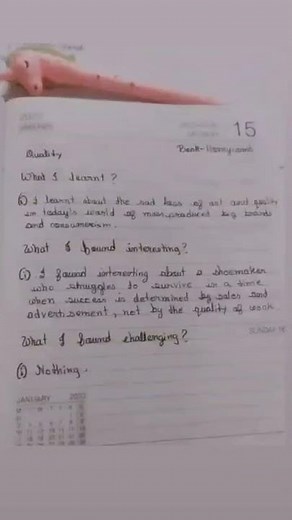 15
Quality
What I learnt?
(i) I learnt about the sad loss of art and quality
in today's world of mass produced big brands
and consumerism.
What I found interesting?
(i) I found interesting about a shoemaker
who struggles to survive in a time
when success is determined by sales and
advertisement, not by the quality of work
What I found challenging?
(i) Nothing.
JANUARY